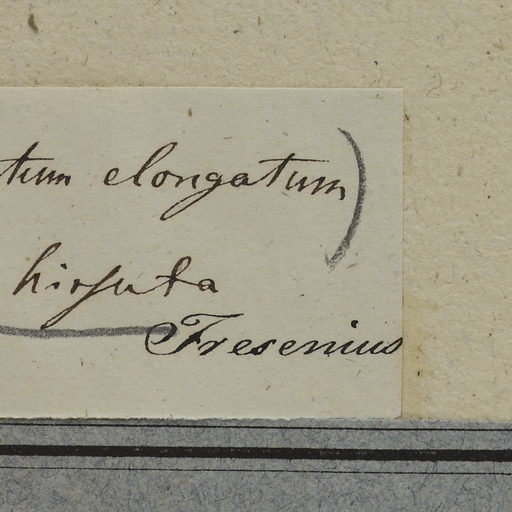 tum elongatum)
hirsuta
Fresenius